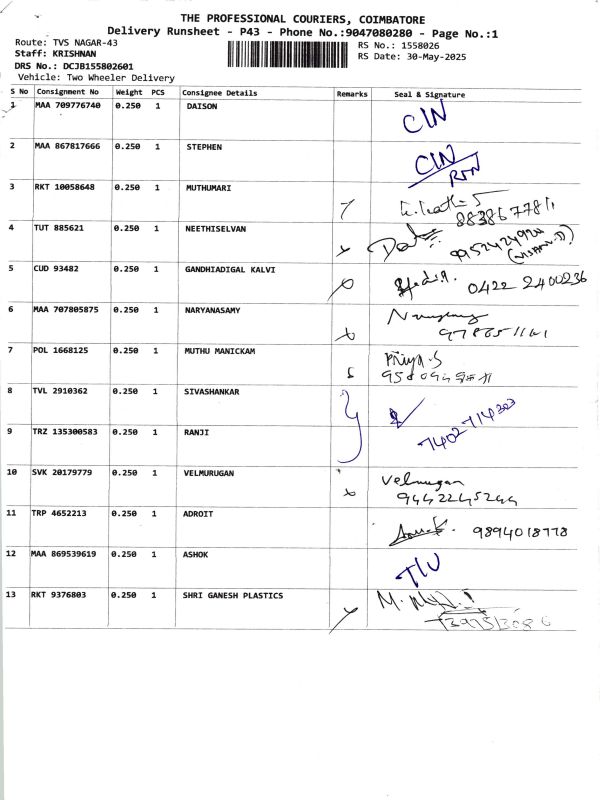 THE PROFESSIONAL COURIERS, COIMBATORE
Delivery Runsheet - P43 - Phone No.:9047080280 - Page No.:1
Route: TVS NAGAR-43
Staff: KRISHNAN
DRS No.: DCJB155802601
Vehicle: Two Wheeler Delivery
RS No.: 1558026
RS Date: 30-May-2025
S No Consignment No Weight PCS Consignee Details Remarks Seal & Signature
1 MAA 709776740 0.250 1 DAISON CIN
2 MAA 867817666 0.250 1 STEPHEN CIN
RTN
3 RKT 10058648 0.250 1 MUTHUMARI
4 TUT 885621 0.250 1 NEETHISELVAN
5 CUD 93482 0.250 1 GANDHIADIGAL KALVI 0422 2400236
6 MAA 707805875 0.250 1 NARYANASAMY
7 POL 1668125 0.250 1 MUTHU MANICKAM Priya.S
8 TVL 2910362 0.250 1 SIVASHANKAR
9 TRZ 135300583 0.250 1 RANJI 7402714303
10 SVK 20179779 0.250 1 VELMURUGAN Velmurugan
9442245244
11 TRP 4652213 0.250 1 ADROIT 9894018778
12 MAA 869539619 0.250 1 ASHOK
13 RKT 9376803 0.250 1 SHRI GANESH PLASTICS